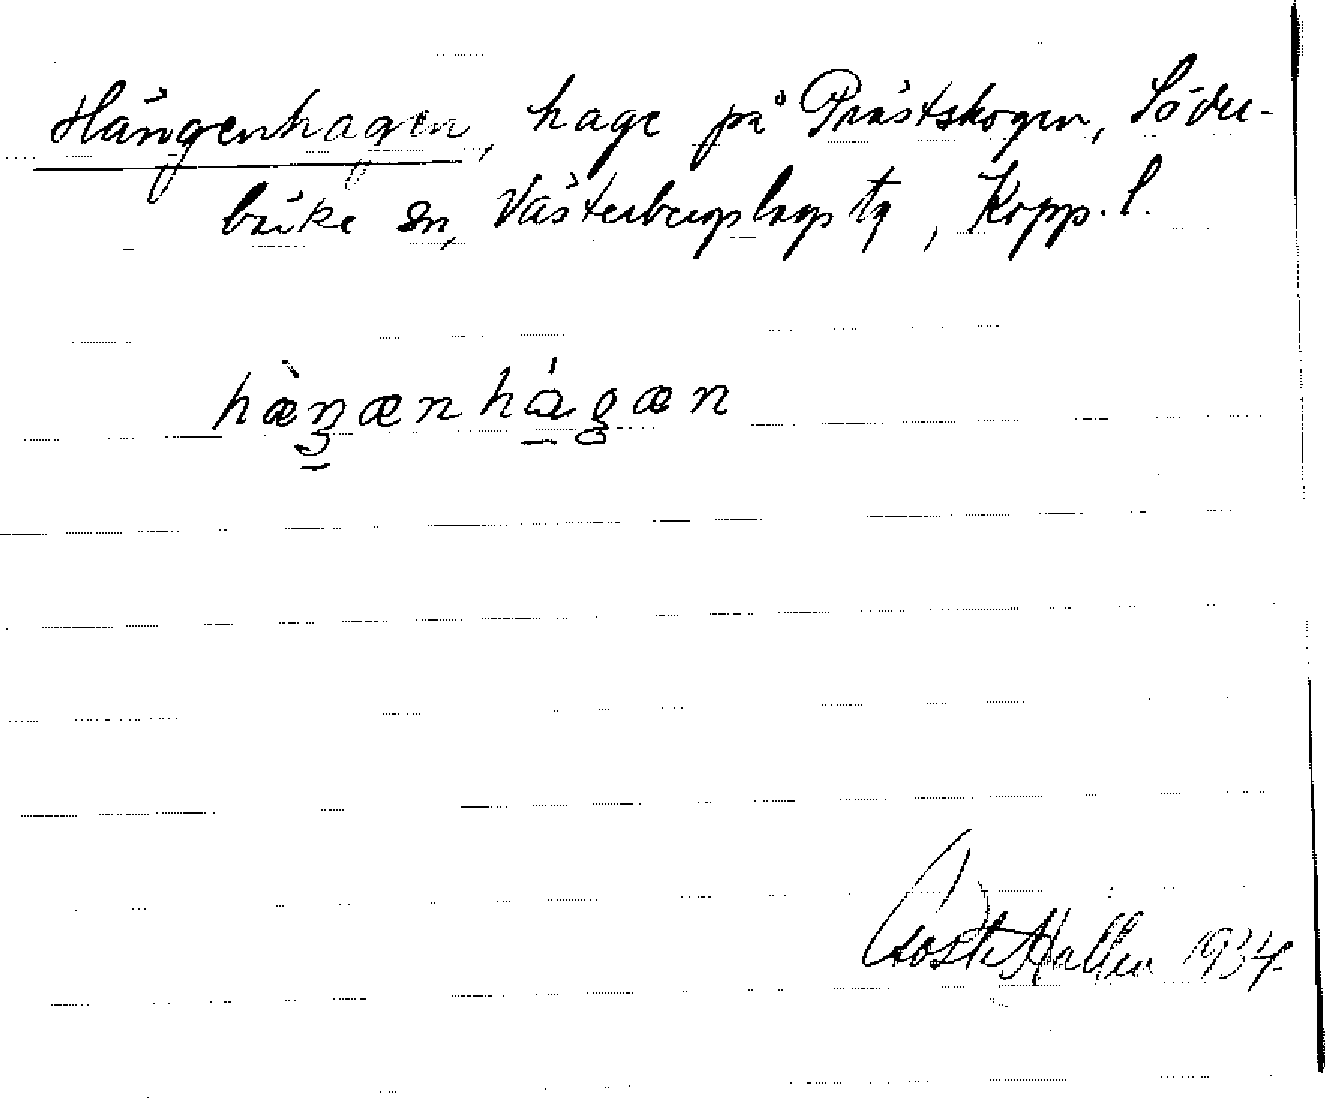 Hängenhagen, hage på Prästskogen, Söder-
bärke sn, Västerbergslags tg, Kopp. l.
hæ̀ŋænhágæn
Gösta Hallén 1934